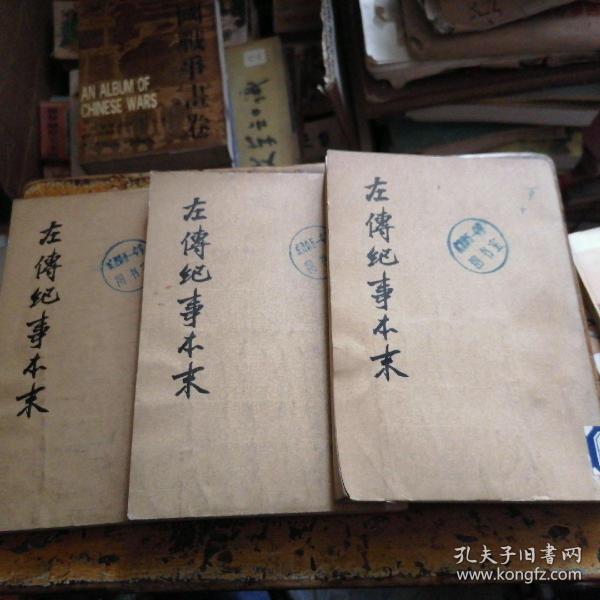 國戰爭畫卷
AN ALBUM OF
CHINESE WARS
左傳紀事本末
左傳紀事本末
左傳紀事本末
图书室
图书室
孔夫子旧书网
www.kongfz.com